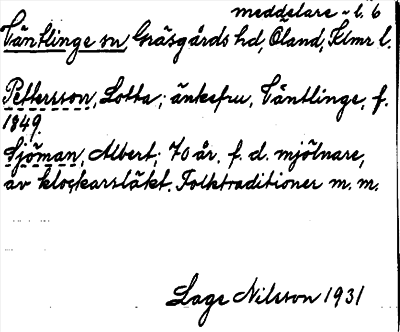 meddelare - l. 6
Ventlinge sn, Gräsgårds hd, Öland, Klmr l.
Pettersson, Lotta; änkefru, Ventlinge, f.
1849.
Sjöman, Albert; 70 år. f. d. mjölnare,
av klockarsläkt. Folktraditioner m. m.
Lage Nilsson 1931